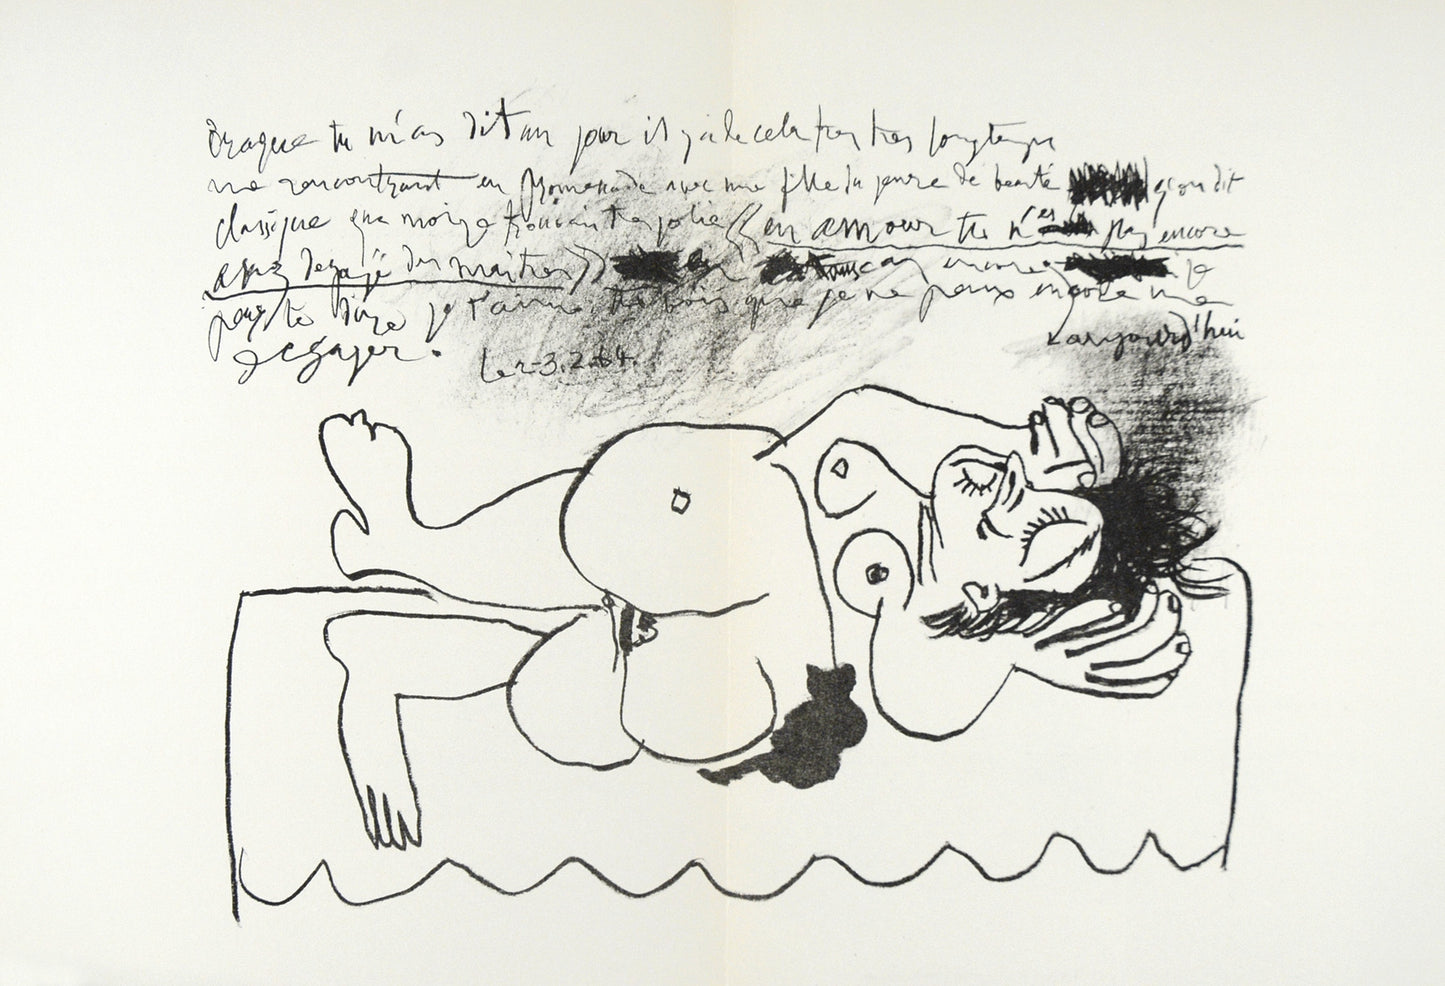 Braque tu m'as dit un jour il y a de cela tres tres longtemps
me rencontrant en promenade avec une fille du genre de beauté qu'on dit
classique que moi je trouvais tres jolie « en amour tu n'es pas encore
assez degagé des maitres » encore je
pour te dire je t'aime tu vois que je ne peux encore me
aujourd'hui
degager.
le 2-3.2.64.